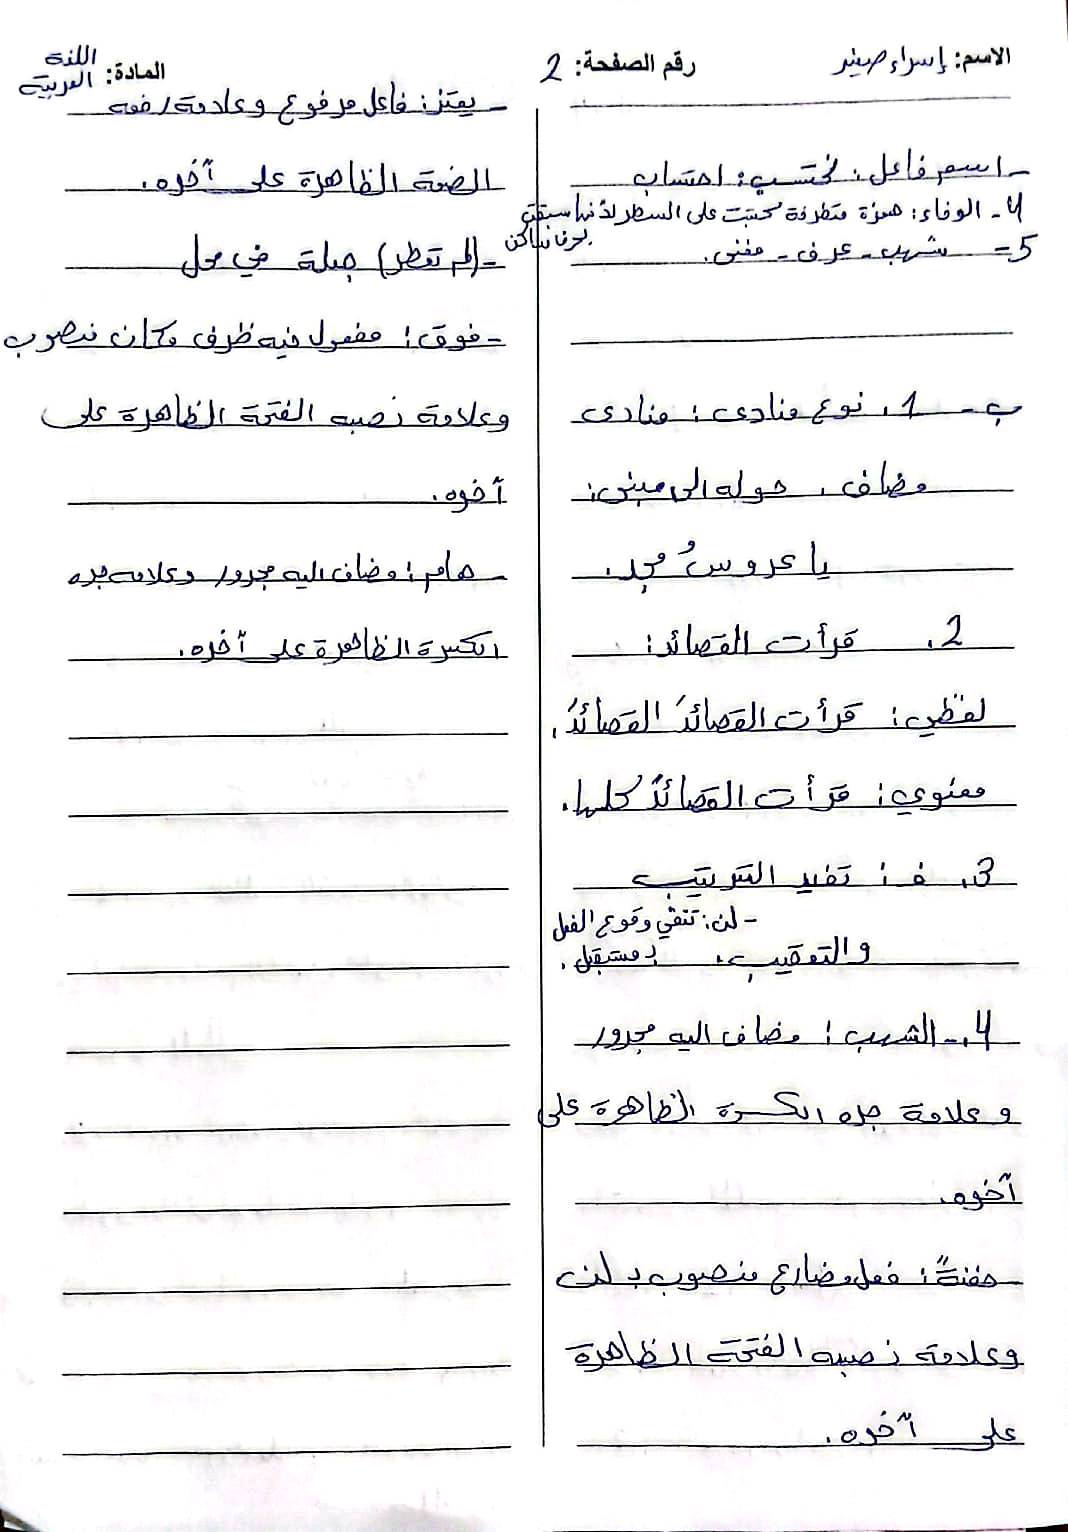 الاسم: إسراء صغير
رقم الصفحة: 2
المادة: اللغة العربية
- اسم فاعل: محتسب: احتساب
4- الوفاء: همزة متطرفة كتبت على السطر لأنها سبقت
بحرف ساكن.
5= شهب - عرف - مغنى.
ب - 1. نوع منادى: منادى
مضاف. حوله الى مبني:
يا عروسُ مجد.
2. قرأت القصائد:
لفظي: قرأت القصائدَ القصائدَ.
معنوي: قرأت القصائدَ كلها.
3. ف: تفيد الترتيب
والتعقيب.
- لن: تنفي وقوع الفعل
بمستقبل.
4.- الشهب: مضاف اليه مجرور
وعلامة جره الكسرة الظاهرة على
آخره.
فعل مضارع منصوب بـ لن
وعلامة نصبه الفتحة الظاهرة
على آخره.
- يعتز: فاعل مرفوع وعلامة رفعه
الضمة الظاهرة على آخره.
- (لم تعطر) جملة في محل
- فوق: مفعول فيه ظرف مكان منصوب
وعلامة نصبه الفتحة الظاهرة على
آخره.
- هام: مضاف اليه مجرور وعلامة جره
الكسرة الظاهرة على آخره.